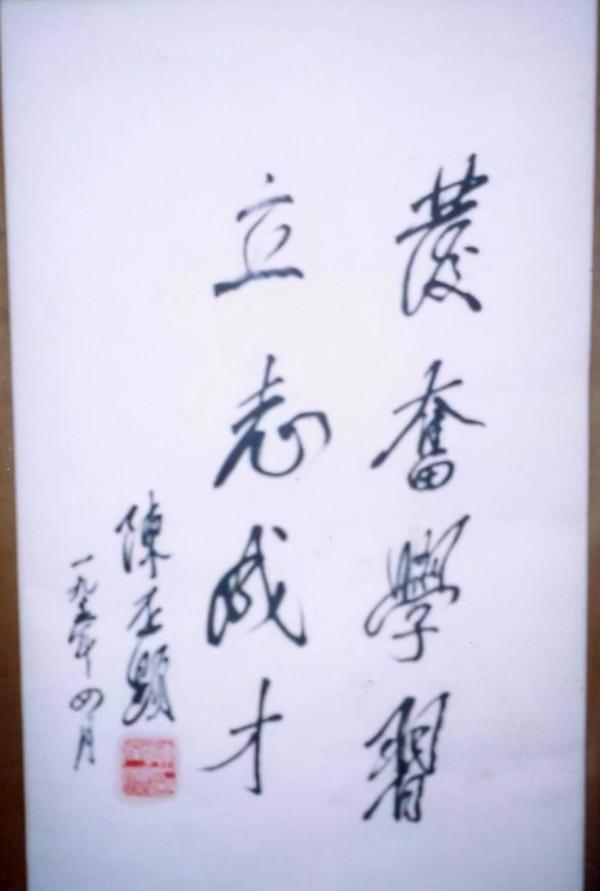 發奮學習
立志成才
陳丕顯
一九 年四月